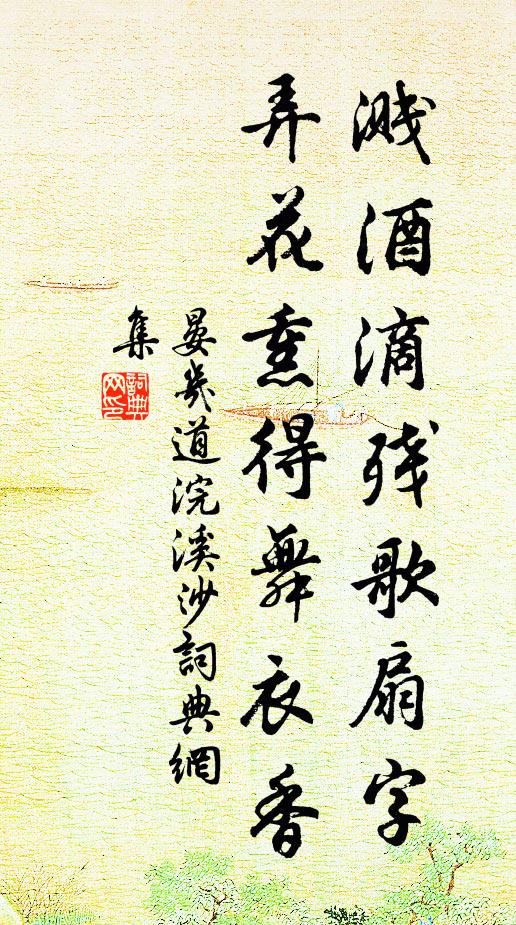 溅酒滴残歌扇字
弄花熏得舞衣香
晏幾道浣溪沙詞典網
集
詞典网印